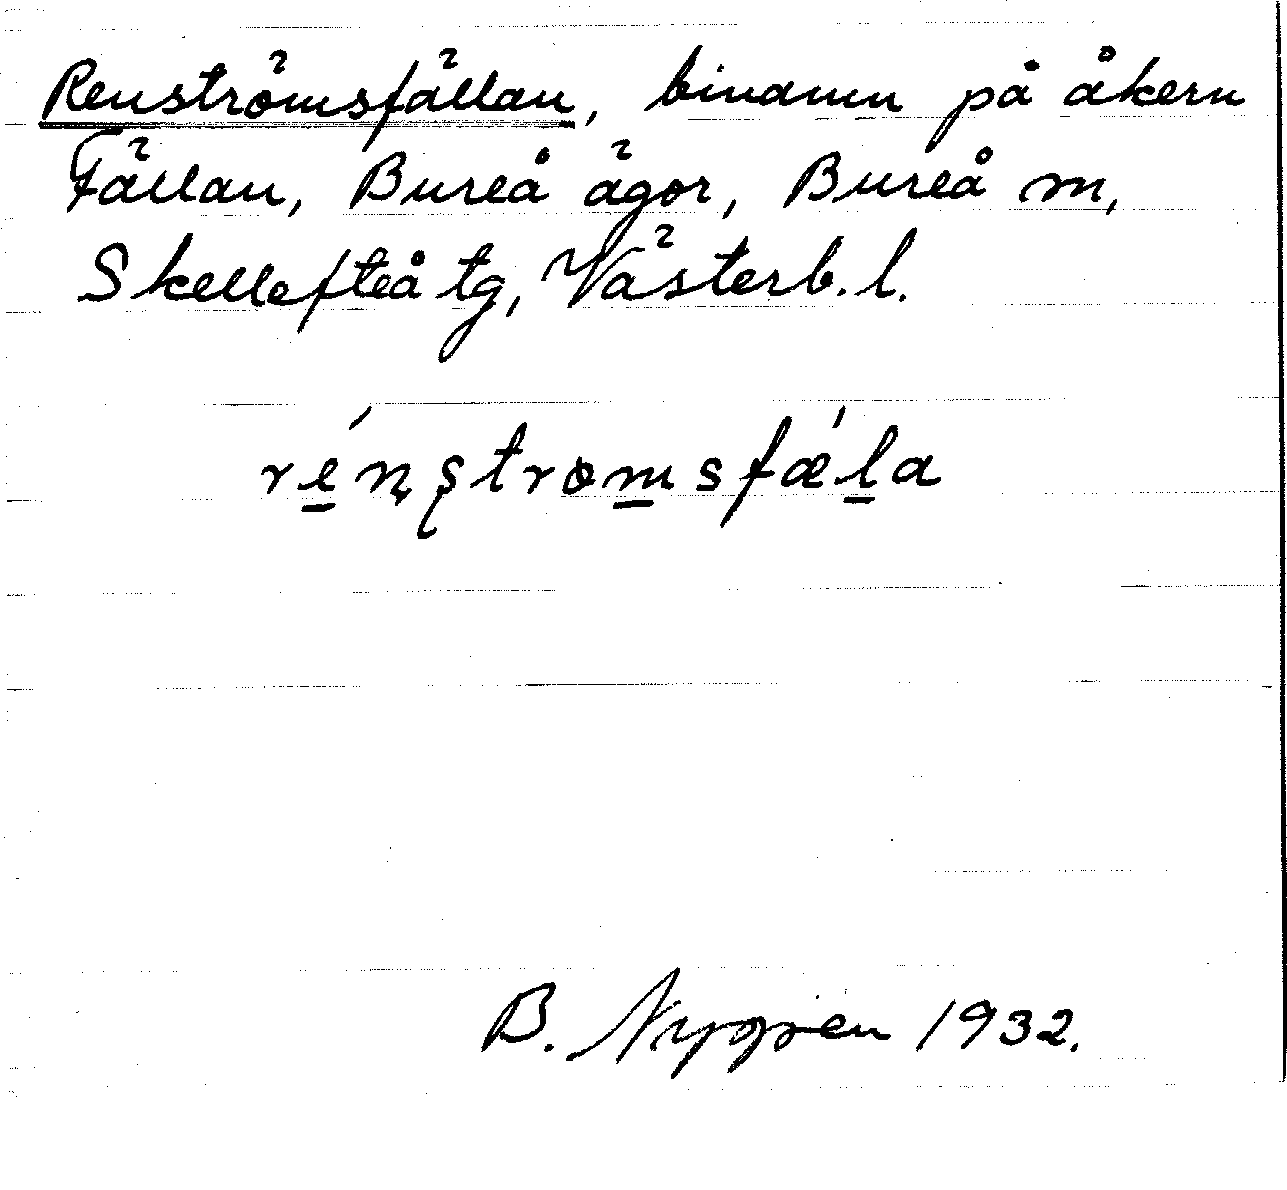 Renströmsfällan, binamn på åkern
Fällan, Bureå ägor, Bureå m,
Skellefteå tg, Västerb. l.
ré̱nʂtrɵm̱sfǽḻa
B. Nygren 1932.